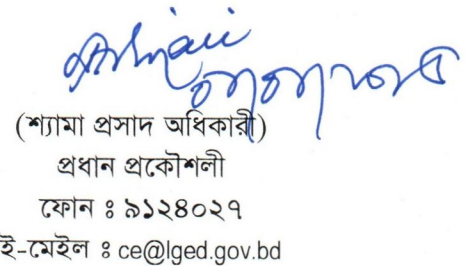 (শ্যামা প্রসাদ অধিকারী)
প্রধান প্রকৌশলী
ফোন ঃ ৯১২৪০২৭
ই-মেইল ঃ ce@lged.gov.bd